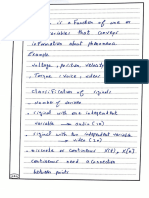 is a Function of one or
variables that conveys
information about phenomena.
Example
voltage, position, velocity
Torque, voice, video.
classification of signals
- Number of variable
- signal with one independent
variable → audio (1D)
- signal with two independent variable
→ video (2D)
discrete or continuous X(t), X[n]
continuous need a connection
between points